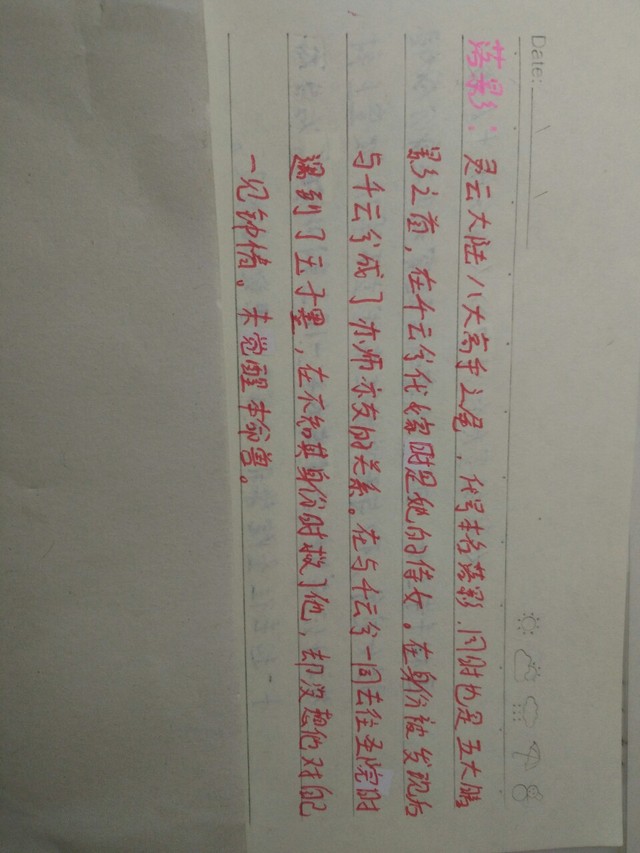 Date:
落影：灵云大陆八大高手之尾，代号本名落影.同时也是五大暗
影之首，在千云兮代嫁时是她的侍女。在身份被发现后
与千云兮成了亦师亦友的关系。在与千云兮一同去往圣院时
遇到了王子墨，在不知其身份时救了他，却没想他对自己
一见钟情。未觉醒本命兽。